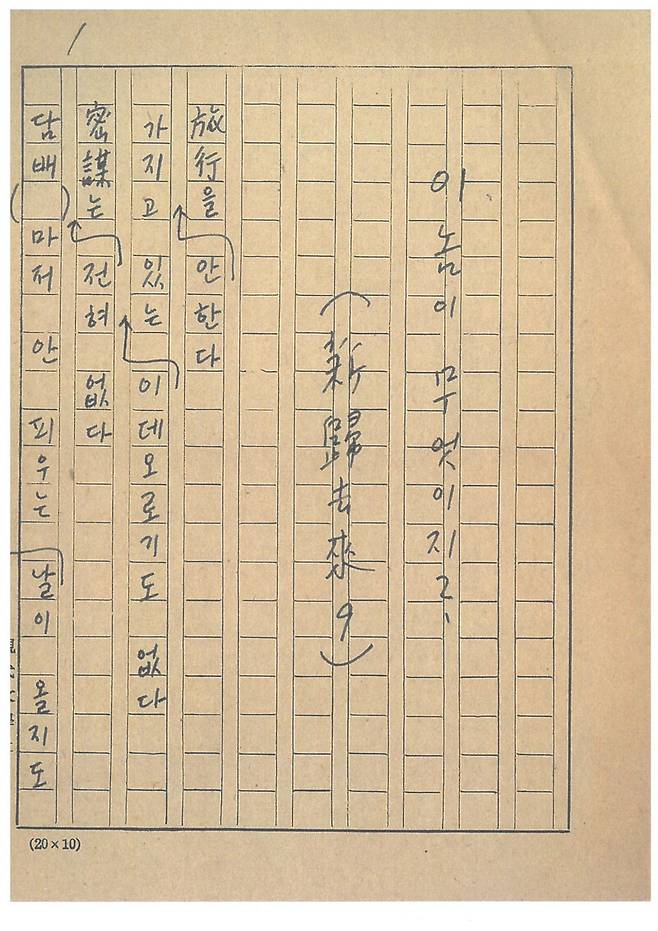 1
이 놈이 무엇이지?
(新歸去來 9)
旅行을 안한다
가지고 있는 이데오로기도 없다
密謀는 전혀 없다
담배( )마저 안 피우는 날이 올지도
(20×10)